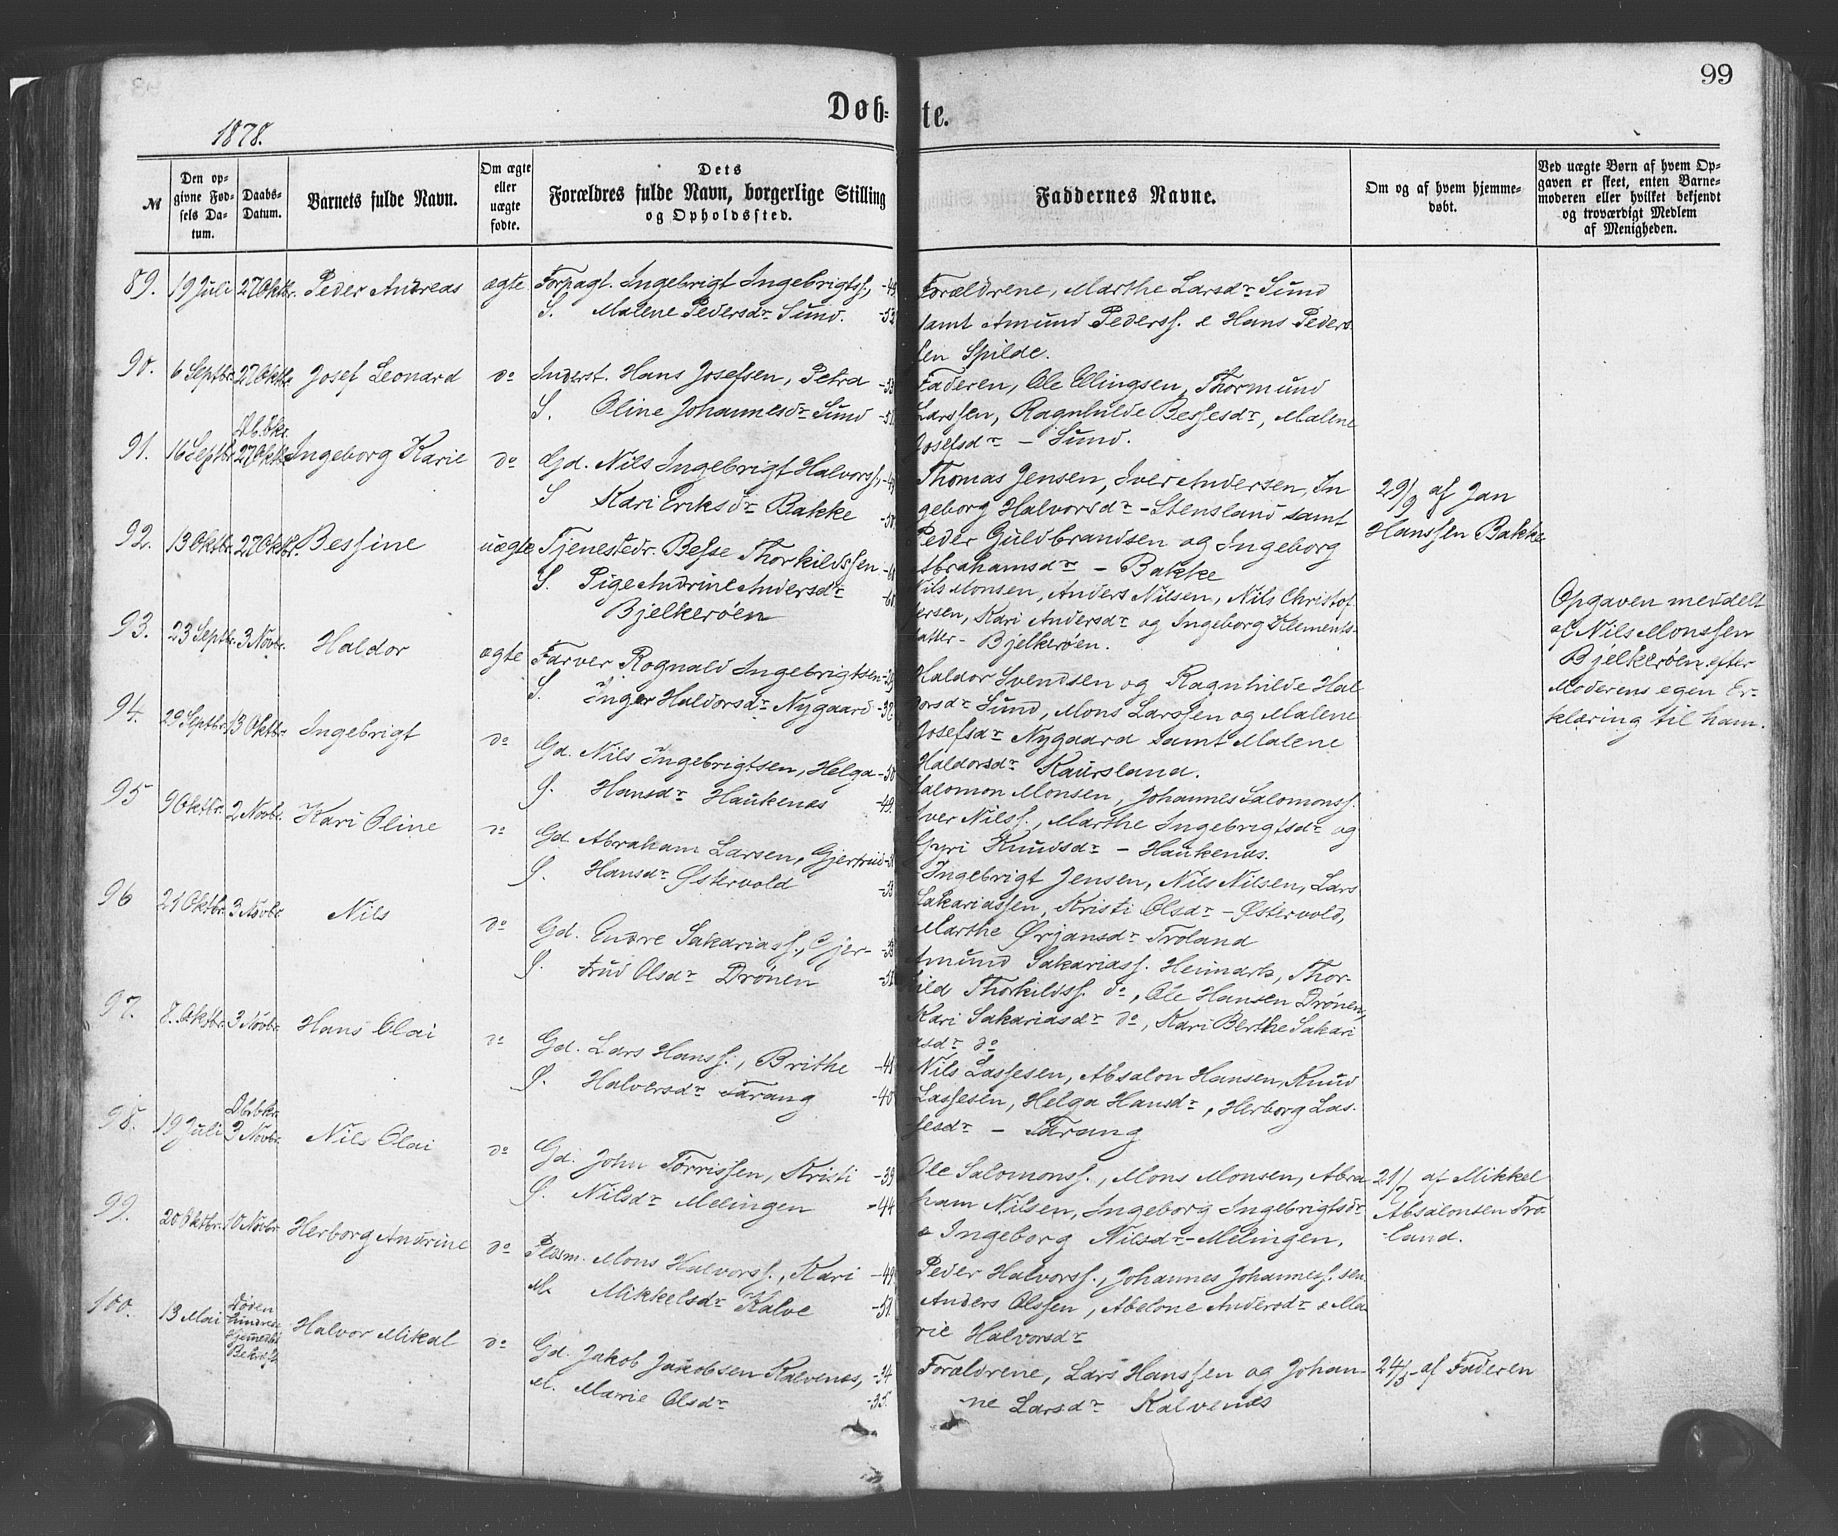 99
Døbte.
1878.
№
Den opgivne Fødsels Datum.
Daabs-Datum.
Barnets fulde Navn.
Om ægte eller uægte fødte.
Dets Forældres fulde Navn, borgerlige Stilling og Opholdssted.
Faddernes Navne.
Om og af hvem hjemmedøbt.
Ved uægte Børn af hvem Opgaven er skeet, enten Barnemoderen eller hvilket bekjendt og troværdigt Medlem af Menigheden.
89. 19 Juli 27 Oktbr. Peder Andreas ægte Forpagt. Ingebrigt Ingebrigtss.,
S. Malene Pedersdr Sund.
Forældrene, Marthe Larsdr Sund
samt Amund Pederss. & Hans Peders
sen Spilde.
90. 6 Septbr. 27 Oktbr. Josef Leonard do Inderst. Hans Josefsen, Petra
S. Oline Johannesdr Sund
Faderen, Ole Ellingsen, Thormund
Larssen, Ragnhilde Bessesdr, Malene
Josefsdr – Sund.
91. 16 Septbr. 27 Oktbr. Ingeborg Karie do Gd. Nils Ingebrigt Halvorss.,
S Kari Eriksdr Bakke
Thomas Jensen, Iver Andersen, In
geborg Halvorsdr – Stensland samt
Peder Guldbrandsen og Ingeborg
Abrahamsdr – Bakke
29/9 af Jan
Hanssen Bakke
92. 13 Oktbr. 27 Oktbr. Bessine uægte Tjenestedr. Besse Thorkildssen
S. Pige Andrine Andersdr
Bjelkerøen
Nils Monsen, Anders Nilsen, Nils Christof
fersen, Kari Andersdr og Ingeborg Klements-
datter – Bjelkerøen.
Opgaven meddelt
af Nils Monssen
Bjelkerøen efter
Moderens egen Er-
klæring til ham.
93. 23 Septbr. 3 Novbr. Haldor ægte Farver Rognald Ingebrigtsen
S. Inger Haldorsdr Nygaard
Haldor Svendsen og Ragnhilde Hal
dorsdr Sund, Mons Larssen og Malene
Josefsdr Nygaard samt Malene
Haldorsdr Kaursland.
94. 29 Septbr. 13 Oktbr. Ingebrigt do Gd. Nils Ingebrigtsen, Helga
S. Hansdr Haukenæs
Salomon Monsen, Johannes Salomonss.
Iver Nilss., Marthe Ingebrigtsdr og
Gyri Knudsdr – Haukenæs.
95 9 Oktbr. 2 Novbr. Kari Oline do Gd. Abraham Larsen, Gjertrud
S. Hansdr Østervold
Ingebrigt Jensen, Nils Nilsen, Lars
Sakariassen, Kristi Olsdr – Østervold,
Marthe Ørjansdr Troland
96 21 Oktbr. 3 Novbr. Nils do Gd. Endre Sakariass., Gjer-
S. trud Olsdr Drönen
Amund Sakariass. Heimark, Thor-
kild Thorkildss. do, Ole Hansen Drönen,
Kari Sakariasdr do, Kari Berthe Sakari
asdr do
97. 8. Oktbr. 3 Novbr. Hans Olai do Gd. Lars Hanss., Brithe
S. Halversdr Tarang
Nils Lassesen, Absalon Hansen, Knud
Lassesen, Helga Hansdr, Herborg Las-
sesdr – Tarang
98. 19 Juli 3 Novbr. Nils Olai do Gd. John Tørrissen, Kristi
S. Nilsdr Melingen
Ole Salomonss., Mons Monsen, Abra
ham Nilsen, Ingeborg Ingebrigtsdr
& Ingeborg Nilsdr – Melingen.
21/7 af Mikkel
Absalonsen Tro
-land.
99. 20 Oktbr. 10 Novbr. Herborg Andrine do Plosm. Mons Halvorss., Kari
M. Mikkelsdr Kalve
Peder Halvorss., Johannes Johanness. sen
Anders Olssen, Abelone Andersdr & Ma
rie Halvorsdr
100. 13 Mai Halvor Mikal do Gd. Jakob Jakobsen Kalvenæs,
M. Marie Olsdr
Forældrene, Lars Hanssen og Johan-
ne Larsdr Kalvenæs
24/5 af Faderen